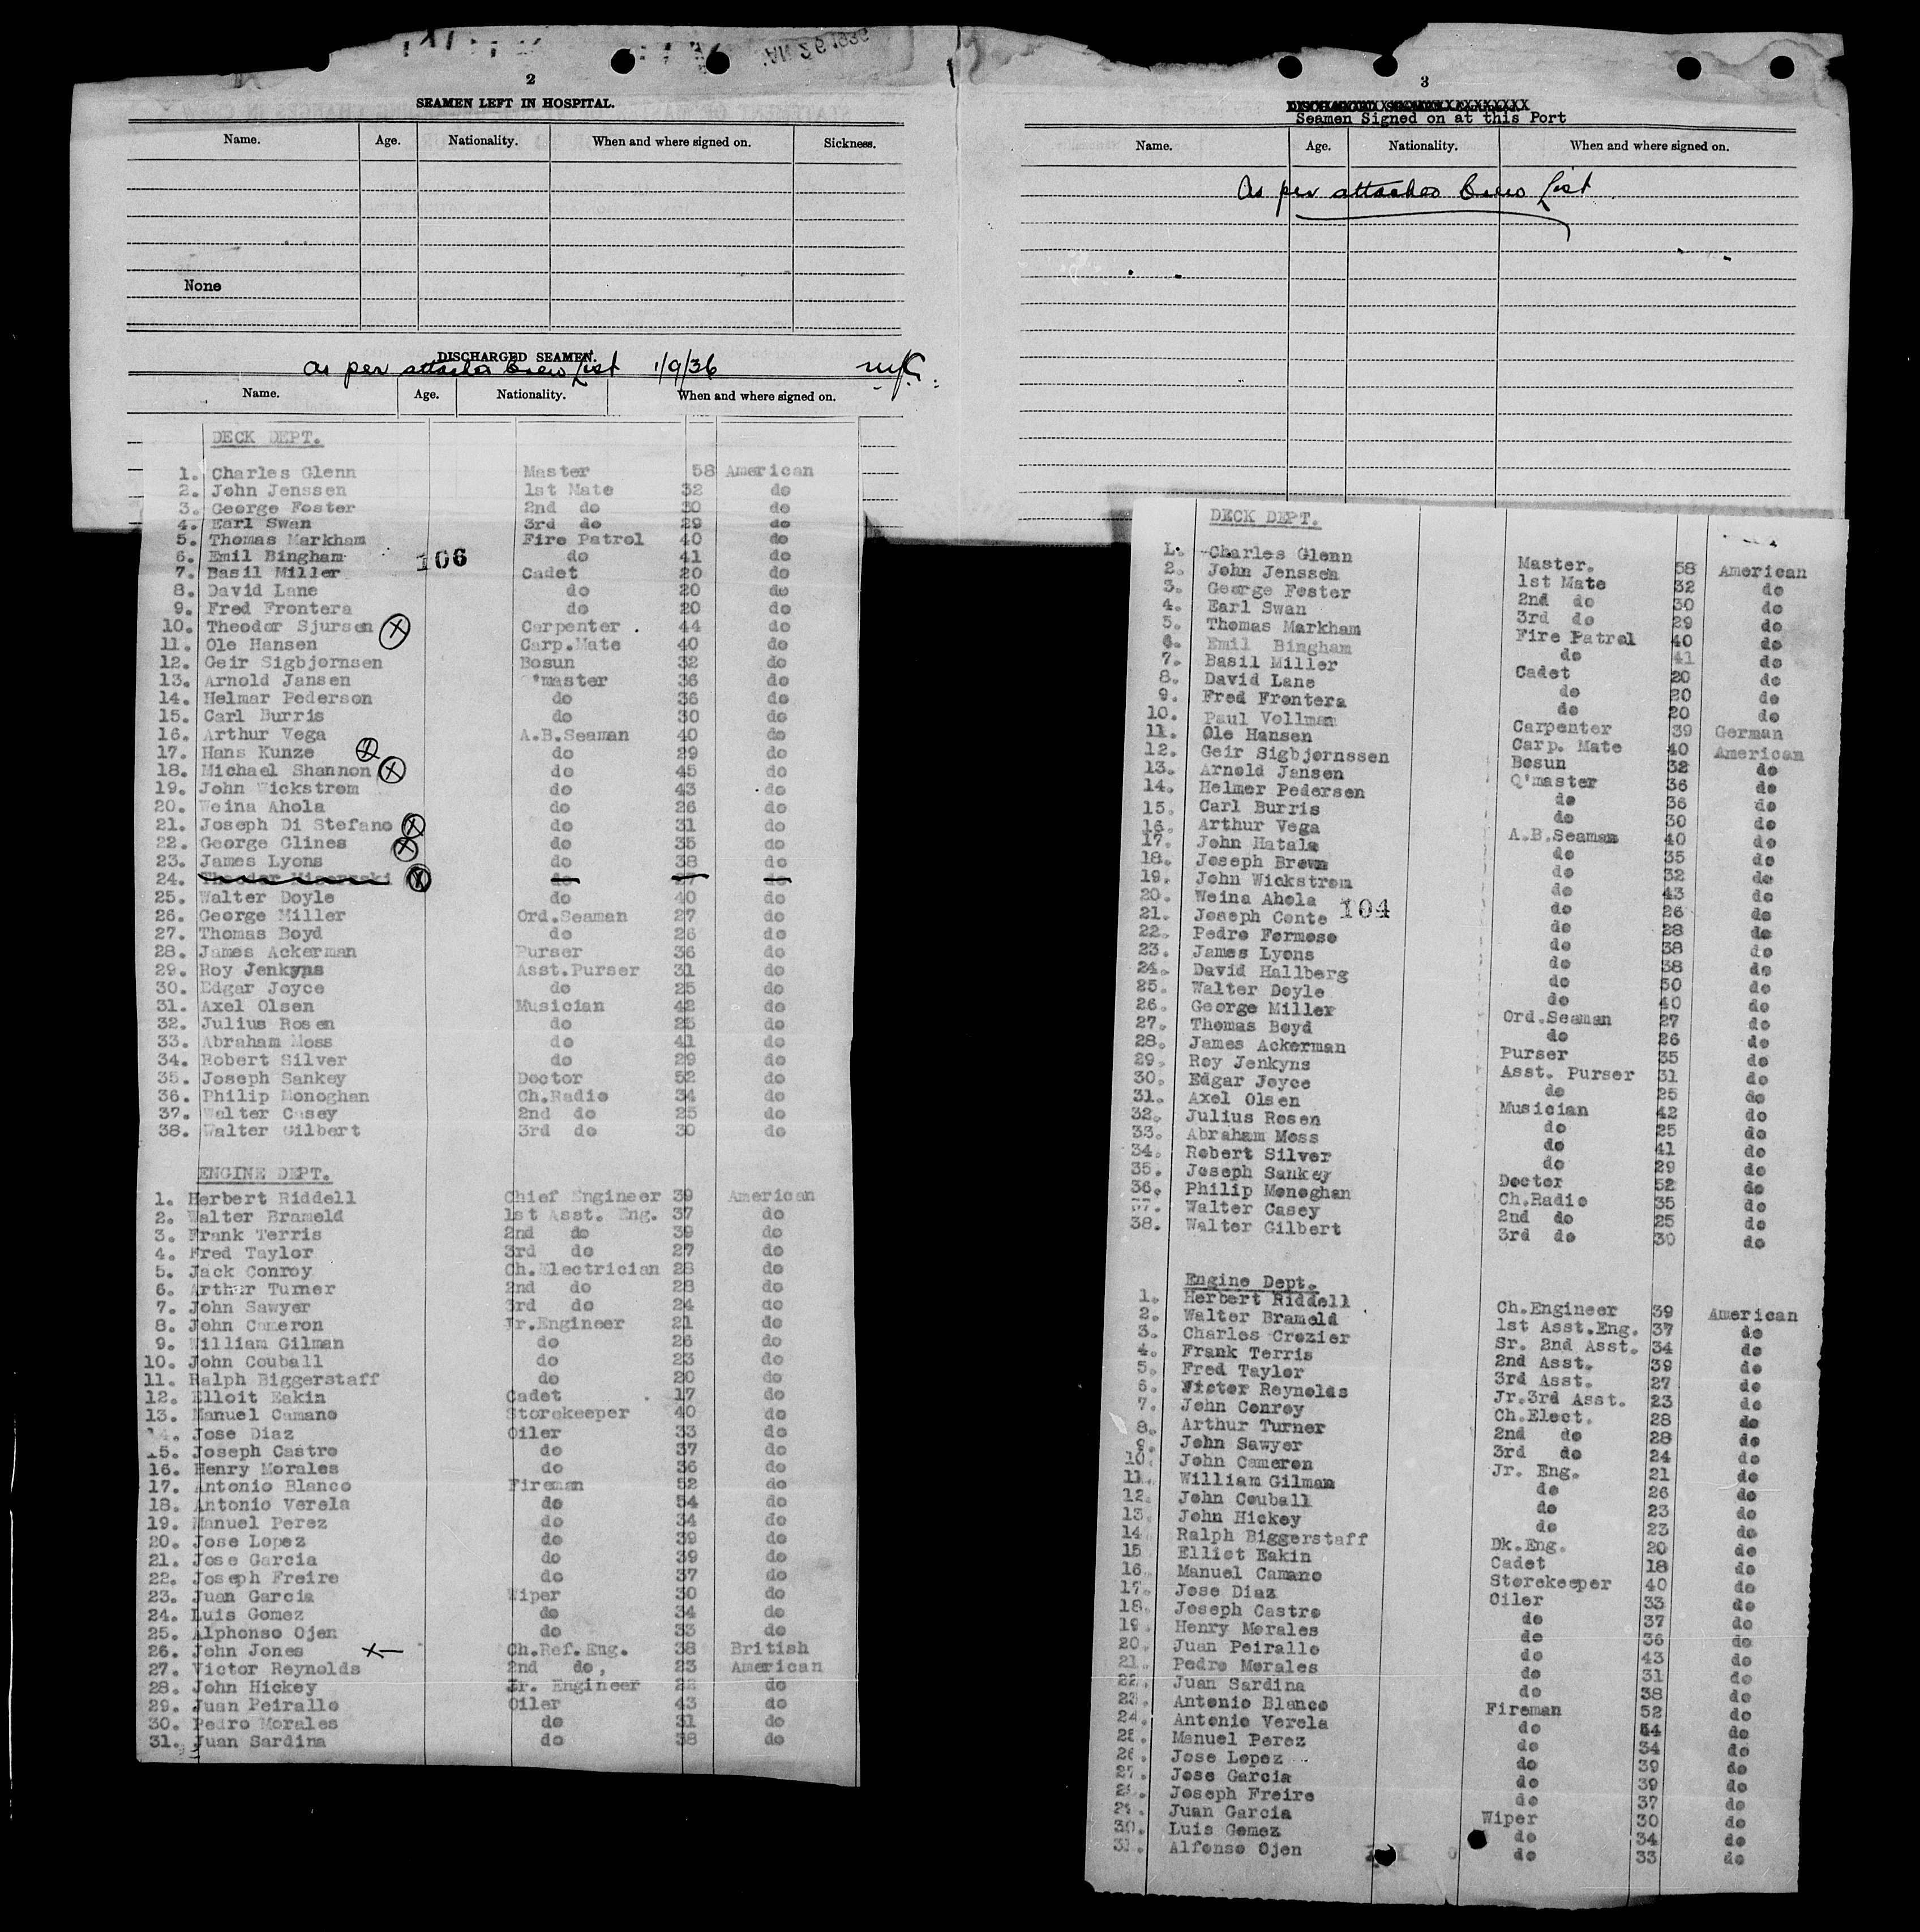 JAN 26 1936
2
SEAMEN LEFT IN HOSPITAL.
Name. Age. Nationality. When and where signed on. Sickness.
None
DISCHARGED SEAMEN.
As per attached Crew List 1/9/36
Name. Age. Nationality. When and where signed on.
DECK DEPT.
1. Charles Glenn Master 58 American
2. John Jenssen 1st Mate 32 do
3. George Foster 2nd do 30 do
4. Earl Swan 3rd do 29 do
5. Thomas Markham Fire Patrol 40 do
6. Emil Bingham 106 do 41 do
7. Basil Miller Cadet 20 do
8. David Lane do 20 do
9. Fred Frontera do 20 do
10. Theodor Sjursen X Carpenter . 44 do
11. Ole Hansen Carp.Mate 40 do
12. Geir Sigbjornsen Bosun 32 do
13. Arnold Jansen Q'master 36 do
14. Helmar Pederson do 36 do
15. Carl Burris do 30 do
16. Arthur Vega A.B.Seaman 40 do
17. Hans Kunze X do 29 do
18. Michael Shannon X do 45 do
19. John Wickstrom do 43 do
20. Weina Ahola do 26 do
21. Joseph Di Stefano X do 31 do
22. George Clines X do 35 do
23. James Lyons do 38 do
24. Theodor X do 27 do
25. Walter Doyle do 40 do
26. George Miller Ord.Seaman 27 do
27. Thomas Boyd do 26 do
28. James Ackerman Purser 36 do
29. Roy Jenkyns Asst.Purser 31 do
30. Edgar Joyce do 25 do
31. Axel Olsen Musician 42 do
32. Julius Rosen do 25 do
33. Abraham Moss do 41 do
34. Robert Silver do 29 do
35. Joseph Sankey Doctor 52 do
36. Philip Monoghan Ch.Radio 34 do
37. Walter Casey 2nd do 25 do
38. Walter Gilbert 3rd do 30 do
ENGINE DEPT.
1. Herbert Riddell Chief Engineer 39 American
2. Walter Brameld 1st Asst. Eng. 37 do
3. Frank Terris 2nd do 39 do
4. Fred Taylor 3rd do 27 do
5. Jack Conroy Ch.Electrician 28 do
6. Arthur Turner 2nd do 28 do
7. John Sawyer 3rd do 24 do
8. John Cameron Jr.Engineer 21 do
9. William Gilman do 26 do
10. John Couball do 23 do
11. Ralph Biggerstaff do 20 do
12. Elloit Eakin Cadet . 17 do
13. Manuel Camano Storekeeper 40 do
14. Jose Diaz Oiler 33 do
15. Joseph Castro do 37 do
16. Henry Morales do 36 do
17. Antonio Blanco Fireman 52 do
18. Antonio Verela do 54 do
19. Manuel Perez do 34 do
20. Jose Lopez do 39 do
21. Jose Garcia do 39 do
22. Joseph Freire do 37 do
23. Juan Garcia Wiper 30 do
24. Luis Gomez do 34 do
25. Alphonso Ojen do 33 do
26. John Jones X Ch.Ref.Eng. 38 British
27. Victor Reynolds 2nd do, 23 American
28. John Hickey Jr. Engineer do
29. Juan Peirallo Oiler 43 do
30. Pedro Morales do 31 do
31. Juan Sardina do 38 do
3
Seamen Signed on at this Port
Name. Age. Nationality. When and where signed on.
As per attached Crew List
DECK DEPT.
1. Charles Glenn Master. 58 American
2. John Jenssen 1st Mate 32 do
3. George Foster 2nd do 30 do
4. Earl Swan 3rd do 29 do
5. Thomas Markham Fire Patrol 40 do
6. Emil Bingham do 41 do
7. Basil Miller Cadet 20 do
8. David Lane do 20 do
9. Fred Frontera do 20 do
10. Paul Vollman Carpenter 39 German
11. Ole Hansen Carp. Mate 40 American
12. Geir Sigbjornssen Bosun 32 do
13. Arnold Jansen Q'master 36 do
14. Helmer Pedersen do 36 do
15. Carl Burris do 30 do
16. Arthur Vega A.B.Seaman 40 do
17. John Hatala do 35 do
18. Joseph Brown do 32 do
19. John Wickstrom do 43 do
20. Weina Ahola do 26 do
21. Joseph Conte 104 do 28 do
22. Pedro Formoso do 38 do
23. James Lyons do 38 do
24. David Hallberg do 50 do
25. Walter Doyle do 40 do
26. George Miller Ord.Seaman 27 do
27. Thomas Boyd do 26 do
28. James Ackerman Purser 35 do
29. Roy Jenkyns Asst. Purser 31 do
30. Edgar Joyce do 25 do
31. Axel Olsen Musician 42 do
32. Julius Rosen do 25 do
33. Abraham Moss do 41 do
34. Robert Silver do 29 do
35. Joseph Sankey Doctor 52 do
36. Philip Monoghan Ch.Radio 35 do
37. Walter Casey 2nd do 25 do
38. Walter Gilbert 3rd do 30 do
Engine Dept.
1. Herbert Riddell Ch.Engineer 39 American
2. Walter Brameld 1st Asst.Eng. 37 do
3. Charles Crozier Sr. 2nd Asst. 34 do
4. Frank Terris 2nd Asst. 39 do
5. Fred Taylor 3rd Asst. 27 do
6. Victor Reynolds Jr.3rd Asst. 23 do
7. John Conroy Ch.Elect. 28 do
8. Arthur Turner 2nd do 28 do
9. John Sawyer 3rd do 24 do
10. John Cameron Jr. Eng. 21 do
11. William Gilman do 26 do
12. John Couball do 23 do
13. John Hickey do 23 do
14. Ralph Biggerstaff Dk.Eng. 20 do
15 Elliot Eakin Cadet 18 do
16. Manuel Camano Storekeeper 40 do
17. Jose Diaz Oiler 33 do
18. Joseph Castro do 37 do
19. Henry Morales do 36 do
20. Juan Peirallo do 43 do
21. Pedro Morales do 31 do
22. Juan Sardina do 38 do
23. Antonio Blanco Fireman 52 do
24. Antonio Verela do 54 do
25. Manuel Perez do 34 do
26. Jose Lopez do 39 do
27. Jose Garcia do 39 do
28. Joseph Freire do 37 do
29. Juan Garcia Wiper 30 do
30. Luis Gomez do 34 do
31. Alfonso Ojen do 33 do